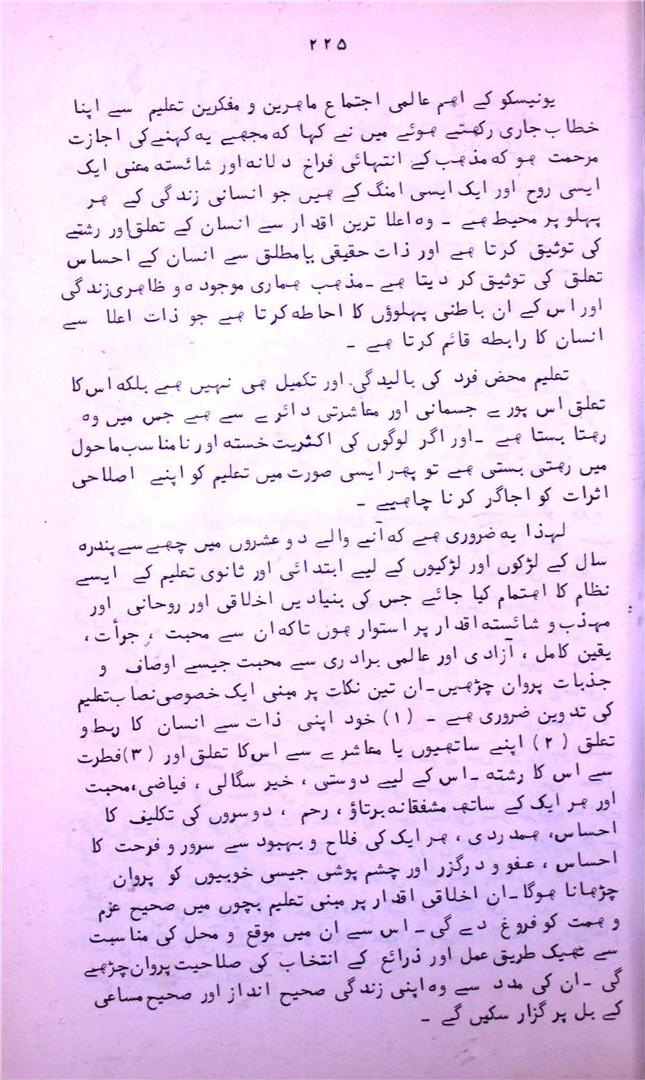 ۲۲۵
یونیسکو کے اھم عالمی اجتماع ماھرین و مفکرین تعلیم سے اپنا
خطاب جاری رکھتے ھوئے میں نے کہا کہ مجھے یہ کہنے کی اجازت
مرحمت ھو کہ مذھب کے انتہائی فراخ دلانہ اور شائستہ معنی ایک
ایسی روح اور ایک ایسی امنگ کے ھیں جو انسانی زندگی کے ھر
پہلو پر محیط ھے ۔ وہ اعلا ترین اقدار سے انسان کے تعلق اور رشتے
کی توثیق کرتا ھے اور ذات حقیقی یا مطلق سے انسان کے احساس
تعلق کی توثیق کر دیتا ھے ۔ مذھب ھماری موجودہ و ظاھری زندگی
اور اس کے ان باطنی پہلوؤں کا احاطہ کرتا ھے جو ذات اعلا سے
انسان کا رابطہ قائم کرتا ھے ۔
تعلیم محض فرد کی بالیدگی اور تکمیل ھی نہیں ھے بلکہ اس کا
تعلق اس پورے جسمانی اور معاشرتی دائرے سے ھے جس میں وہ
رھتا بستا ھے ۔ اور اگر لوگوں کی اکثریت خستہ اور نامناسب ماحول
میں رھتی بستی ھے تو پھر ایسی صورت میں تعلیم کو اپنے اصلاحی
اثرات کو اجاگر کرنا چاھیے ۔
لہذا یہ ضروری ھے کہ آنے والے دو عشروں میں چھے سے پندرہ
سال کے لڑکوں اور لڑکیوں کے لیے ابتدائی اور ثانوی تعلیم کے ایسے
نظام کا اھتمام کیا جائے جس کی بنیادیں اخلاقی اور روحانی اور
مہذب و شائستہ اقدار پر استوار ھوں تاکہ ان سے محبت ، جرأت ،
یقین کامل ، آزادی اور عالمی برادری سے محبت جیسے اوصاف و
جذبات پروان چڑھیں ۔ ان تین نکات پر مبنی ایک خصوصی نصاب تعلیم
کی تدوین ضروری ھے ۔ (۱) خود اپنی ذات سے انسان کا ربط و
تعلق (۲) اپنے ساتھیوں یا معاشرے سے اس کا تعلق اور (۳) فطرت
سے اس کا رشتہ ۔ اس کے لیے دوستی ، خیر سگالی ، فیاضی ، محبت
اور ھر ایک کے ساتھ مشفقانہ برتاؤ ، رحم ، دوسروں کی تکلیف کا
احساس ، ھمدردی ، ھر ایک کی فلاح و بہبود سے سرور و فرحت کا
احساس ، عفو و درگزر اور چشم پوشی جیسی خوبیوں کو پروان
چڑھانا ھوگا ۔ ان اخلاقی اقدار پر مبنی تعلیم بچوں میں صحیح عزم
و ھمت کو فروغ دے گی ۔ اس سے ان میں موقع و محل کی مناسبت
سے ٹھیک طریق عمل اور ذرائع کے انتخاب کی صلاحیت پروان چڑھے
گی ۔ ان کی مدد سے وہ اپنی زندگی صحیح انداز اور صحیح مساعی
کے بل پر گزار سکیں گے ۔